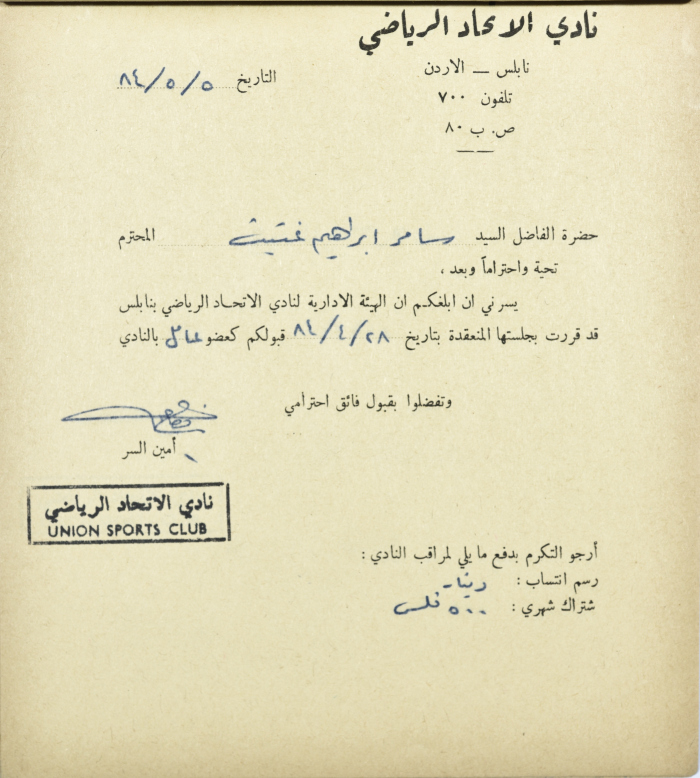 نادي الاتحاد الرياضي
نابلس — الاردن
تلفون ٧٠٠
ص. ب ٨٠
التاريخ ٨٤/٥/٥
حضرة الفاضل السيد سامر ابراهيم المحترم
تحية واحتراماً وبعد ،
يسرني ان ابلغكم ان الهيئة الادارية لنادي الاتحاد الرياضي بنابلس
قد قررت بجلستها المنعقدة بتاريخ ٨٤/٤/٢٨ قبولكم كعضو عامل بالنادي
وتفضلوا بقبول فائق احترامي
أمين السر
نادي الاتحاد الرياضي
UNION SPORTS CLUB
أرجو التكرم بدفع ما يلي لمراقب النادي :
رسم انتساب : دينار
شتراك شهري : ٥٠٠ فلس